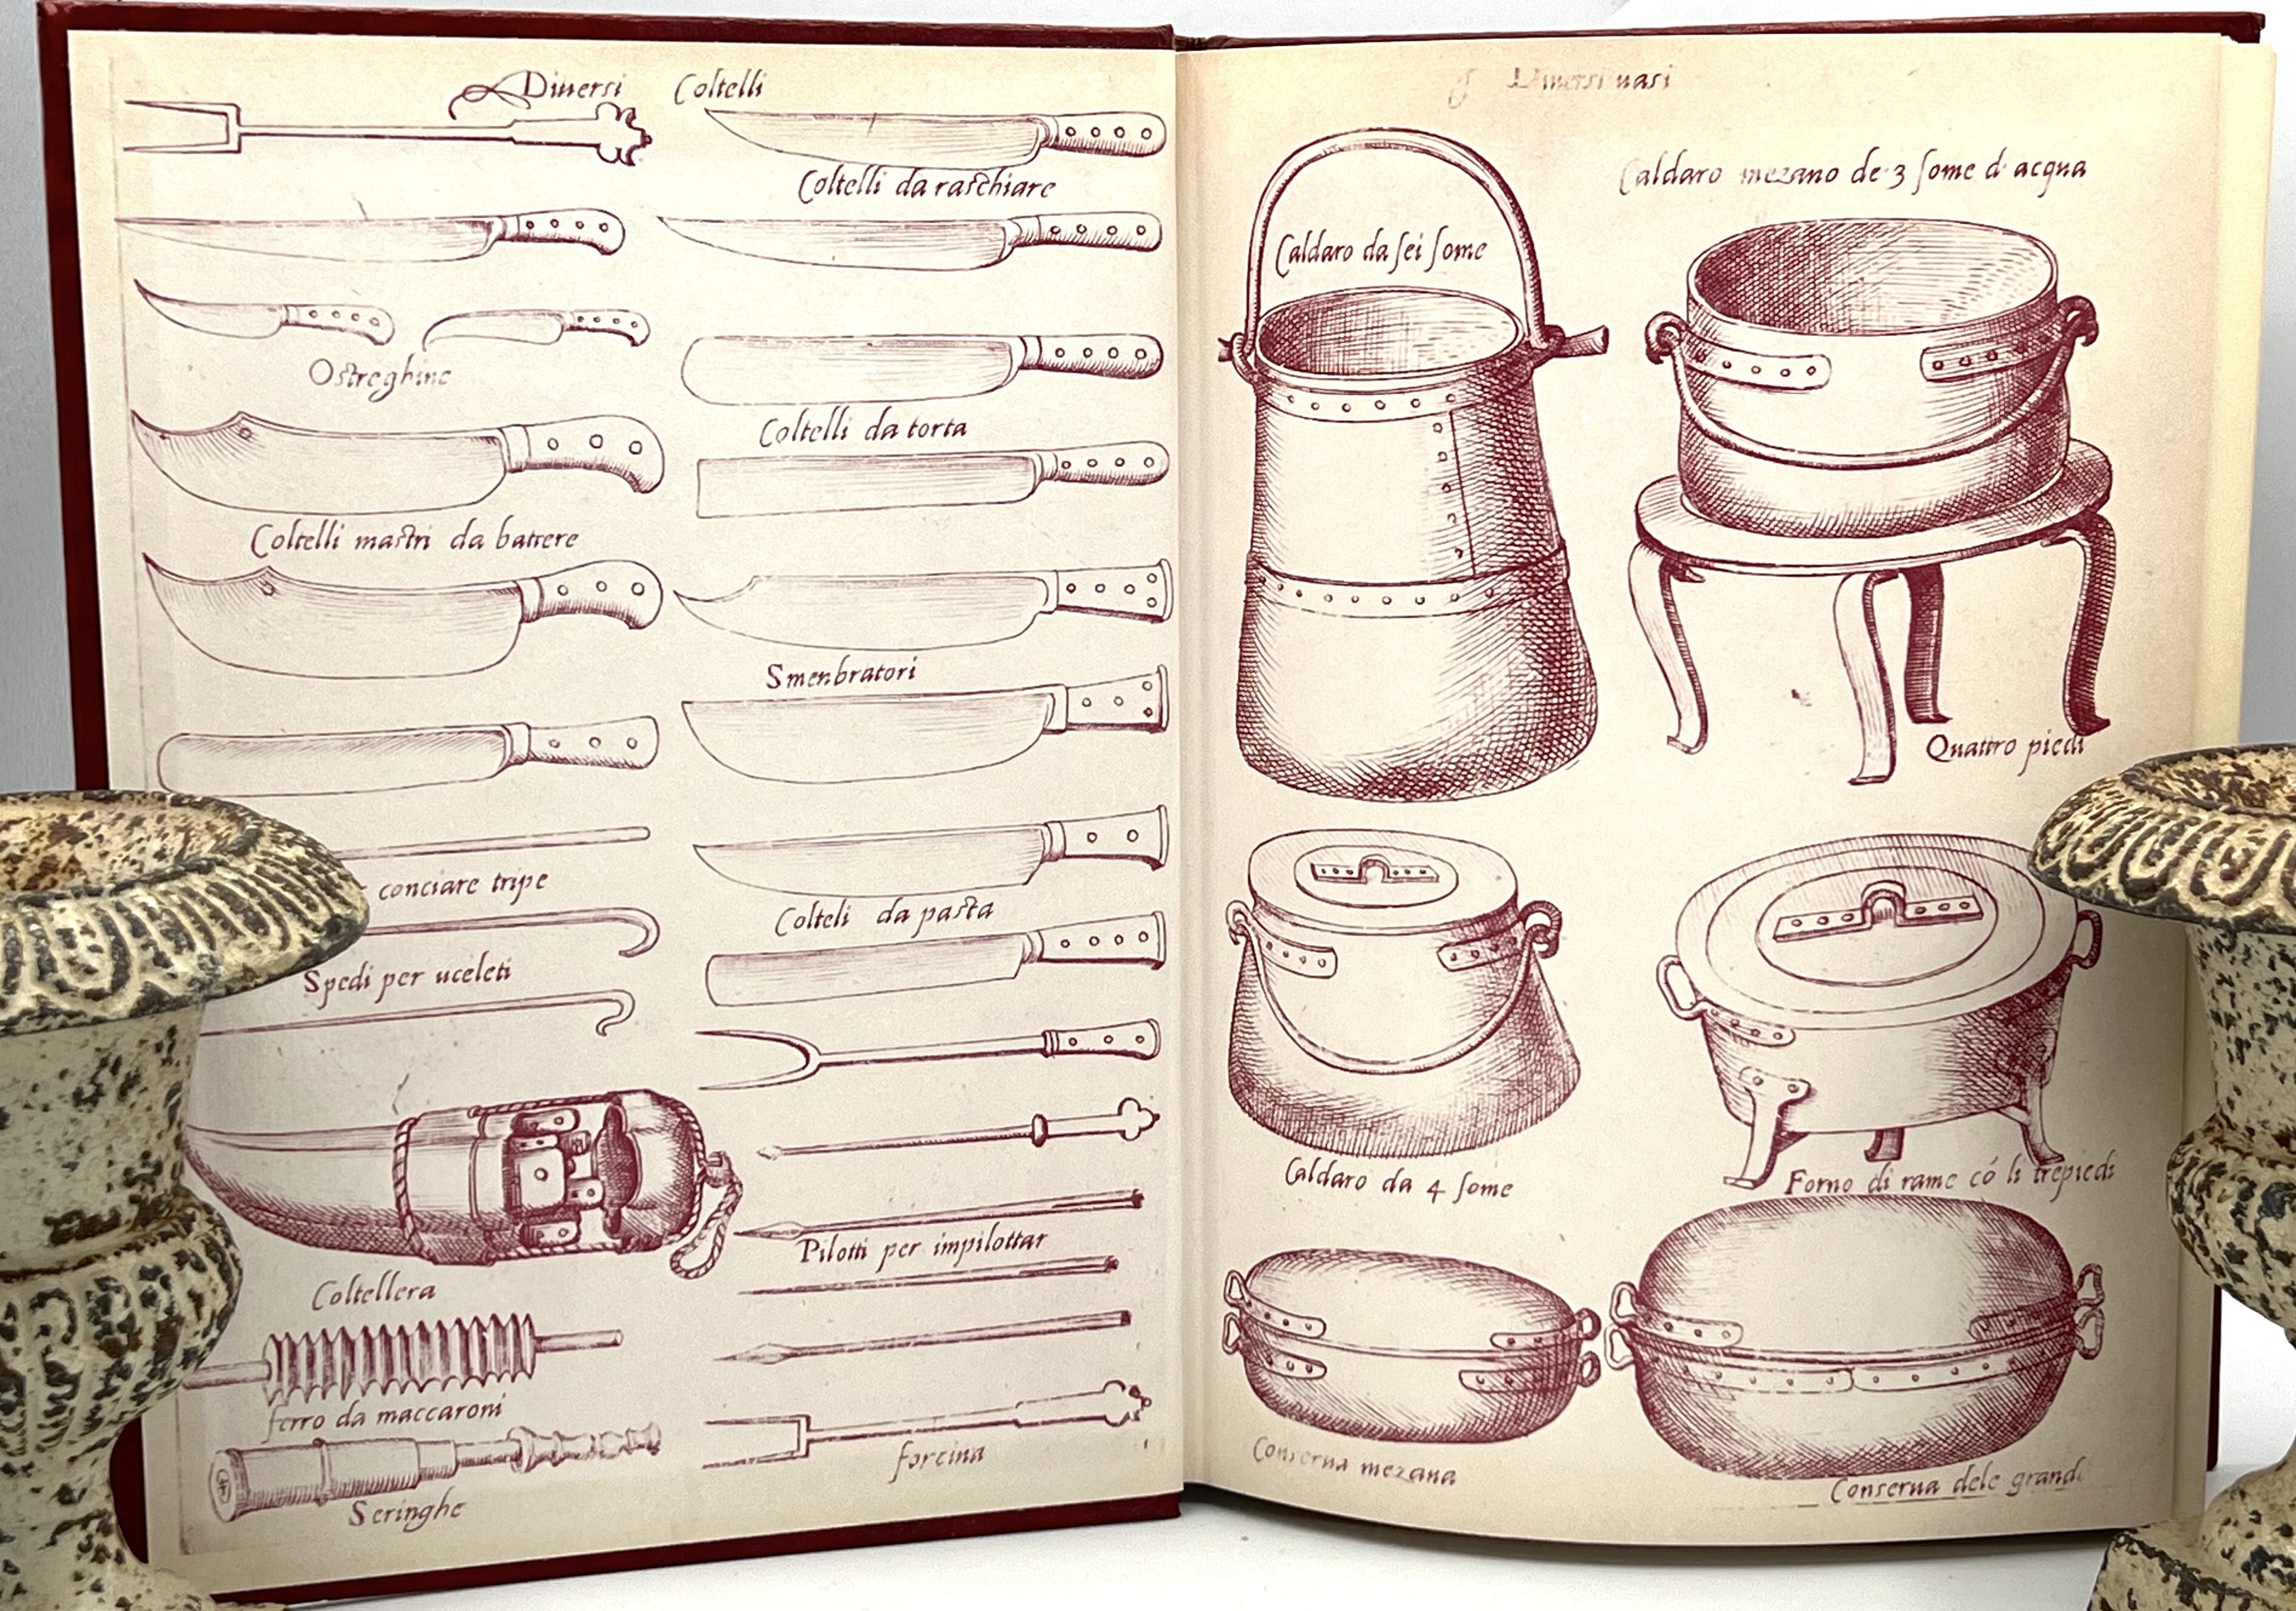 Diuersi Coltelli
Coltelli da raschiare
Ostreghine
Coltelli da torta
Coltelli mastri da battere
Smenbratori
conciare tripe
Colteli da pasta
Spedi per uceleti
Pilotti per impilottar
Coltellera
ferro da maccaroni
forcina
Seringhe
Diuersi uasi
Caldaro mezano de 3 some d' acqua
Caldaro da sei some
Quattro piedi
Caldaro da 4 some
Forno di rame có li trepiedi
Conserua mezana
Conserua dele grandi